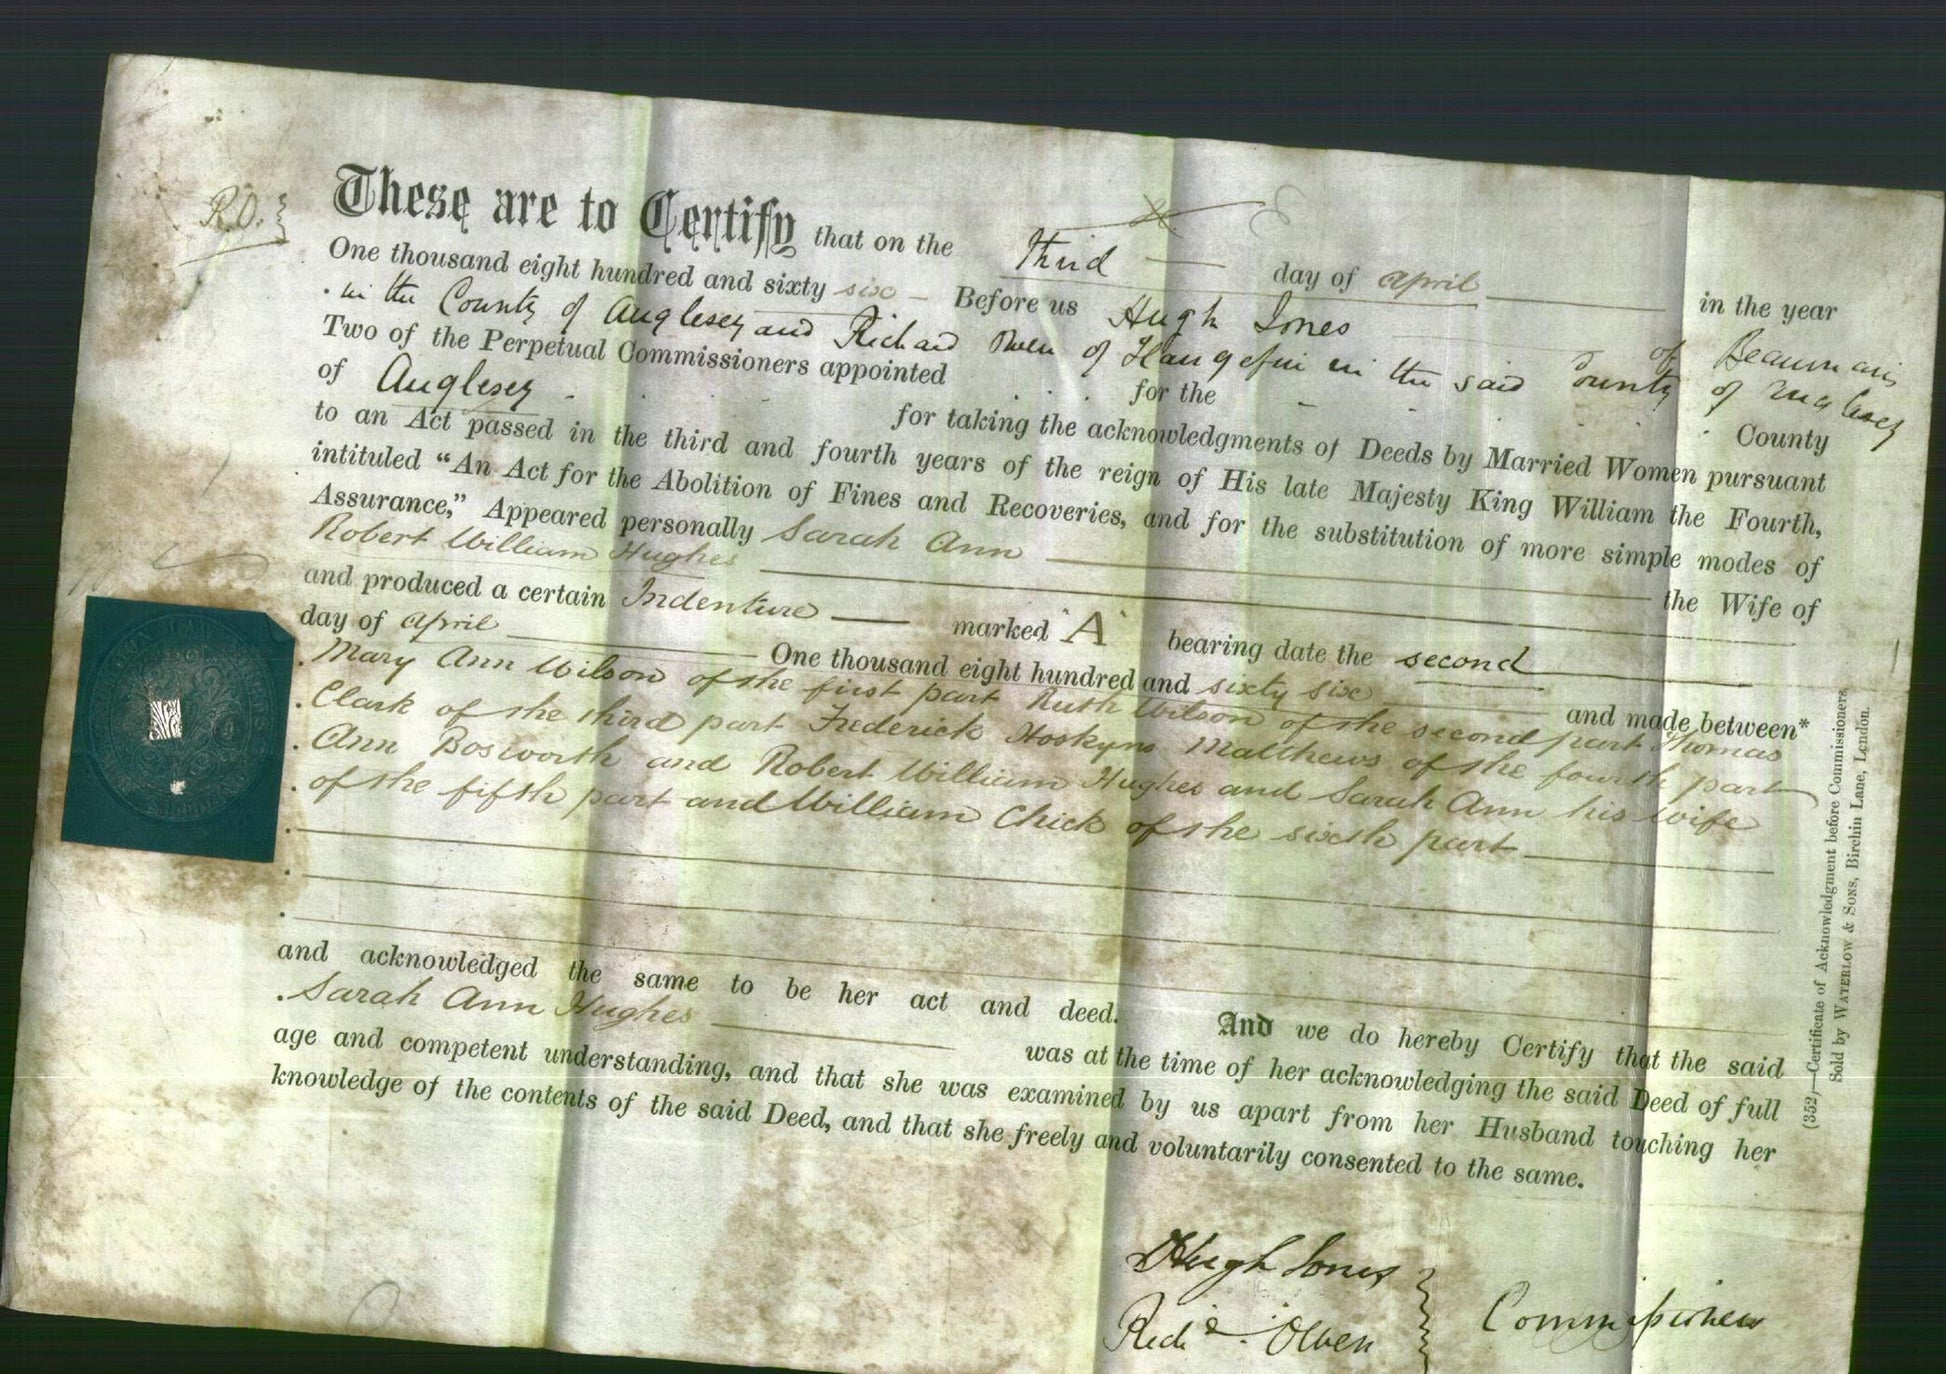 R.O.
These are to Certify that on the Third day of April in the year
One thousand eight hundred and sixty six Before us Hugh Jones of Beaumaris
in the County of Anglesey and Richard Owen of Llangefni in the said County of Anglesey
Two of the Perpetual Commissioners appointed for the County
of Anglesey for taking the acknowledgments of Deeds by Married Women pursuant
to an Act passed in the third and fourth years of the reign of His late Majesty King William the Fourth,
intituled “An Act for the Abolition of Fines and Recoveries, and for the substitution of more simple modes of
Assurance,” Appeared personally Sarah Ann the Wife of
Robert William Hughes
and produced a certain Indenture marked "A" bearing date the second
day of April One thousand eight hundred and sixty six and made between*
Mary Ann Wilson of the first part Ruth Wilson of the second part Thomas
Clark of the third part Frederick Hoskyns Matthews of the fourth part
Ann Bosworth and Robert William Hughes and Sarah Ann his wife
of the fifth part and William Chick of the sixth part
and acknowledged the same to be her act and deed. And we do hereby Certify that the said
Sarah Ann Hughes was at the time of her acknowledging the said Deed of full
age and competent understanding, and that she was examined by us apart from her Husband touching her
knowledge of the contents of the said Deed, and that she freely and voluntarily consented to the same.
Hugh Jones
Richd. Owen
Commissioners
(352)—Certificate of Acknowledgment before Commissioners.
Sold by WATERLOW & SONS, Birchin Lane, London.